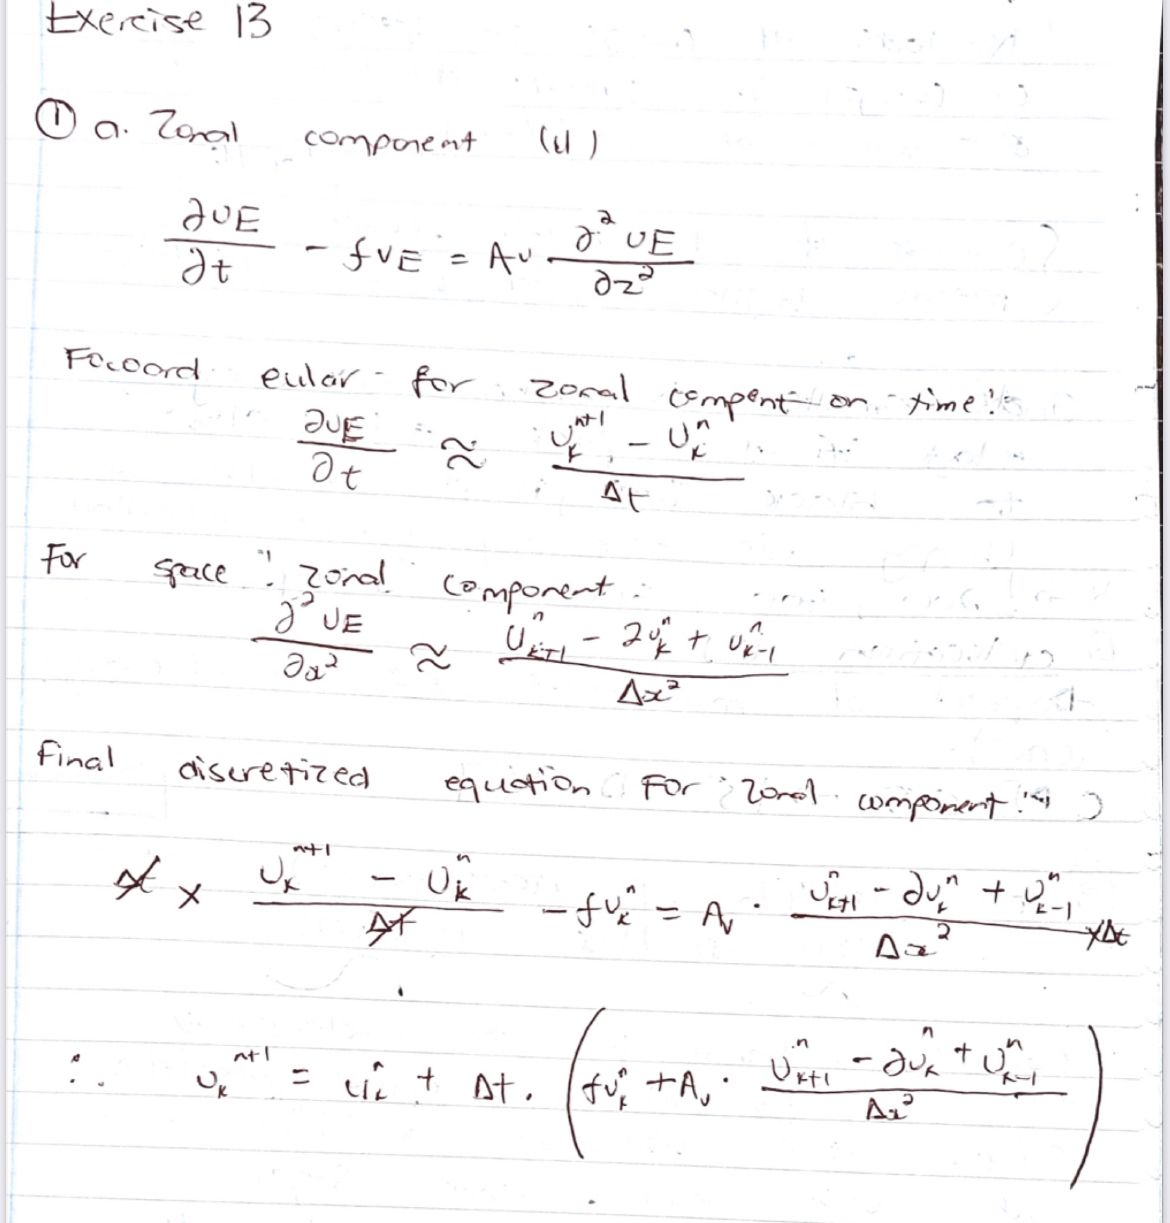 Exercise 13
① a. Zonal component (u)
∂UE/∂t - fVE = Av ∂²UE/∂z²
Forword eular for zonal compent on time:
∂UE/∂t ≈ (U_k^{n+1} - U_k^n)/Δt
For space : zonal component :
∂²UE/∂x² ≈ (U_{k+1}^n - 2U_k^n + U_{k-1}^n)/Δx²
Final discretized equation For zonal component :
Δt × (U_k^{n+1} - U_k^n)/Δt - fV_k^n = Av · (U_{k+1}^n - 2U_k^n + U_{k-1}^n)/Δx² ×Δt
∴ U_k^{n+1} = U_k^n + Δt · (fV_k^n + Av · (U_{k+1}^n - 2U_k^n + U_{k-1}^n)/Δx²)